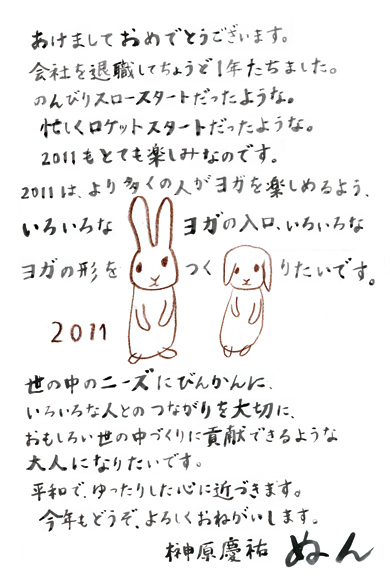 あけましておめでとうございます。
会社を退職してちょうど1年たちました。
のんびりスロースタートだったような。
忙しくロケットスタートだったような。
2011もとても楽しみなのです。
2011は、より多くの人がヨガを楽しめるよう、
いろいろなヨガの入口、いろいろな
ヨガの形をつくりたいです。
2011
世の中のニーズにびんかんに、
いろいろな人とのつながりを大切に、
おもしろい世の中づくりに貢献できるような
大人になりたいです。
平和で、ゆったりした心に近づきます。
今年もどうぞ、よろしくおねがいします。
榊原慶祐 ぬん